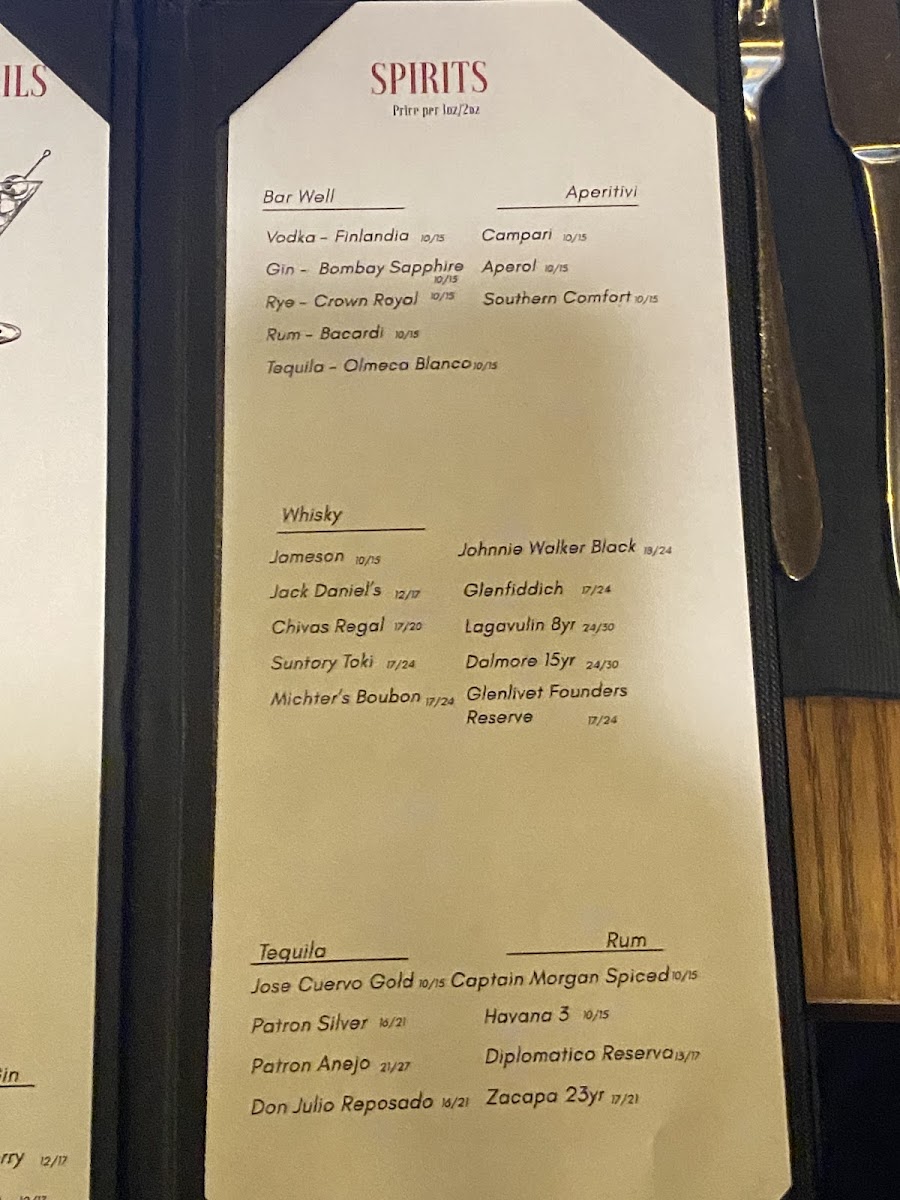 ILS
SPIRITS
Prire per 1oz/2oz
Bar Well
Aperitivi
Vodka - Finlandia 10/15
Campari 10/15
Gin - Bombay Sapphire 10/15
Aperol 10/15
Rye - Crown Royal 10/15
Southern Comfort 10/15
Rum - Bacardi 10/15
Tequila - Olmeca Blanco 10/15
Whisky
Jameson 10/15
Johnnie Walker Black 18/24
Jack Daniel's 12/17
Glenfiddich 17/24
Chivas Regal 17/20
Lagavulin 8yr 24/30
Suntory Toki 17/24
Dalmore 15yr 24/30
Michter's Boubon 17/24
Glenlivet Founders
Reserve 17/24
Tequila
Rum
Jose Cuervo Gold 10/15
Captain Morgan Spiced 10/15
Patron Silver 16/21
Havana 3 10/15
Patron Anejo 21/27
Diplomatico Reserva 13/17
Don Julio Reposado 16/21
Zacapa 23yr 17/21
in
rry 12/17